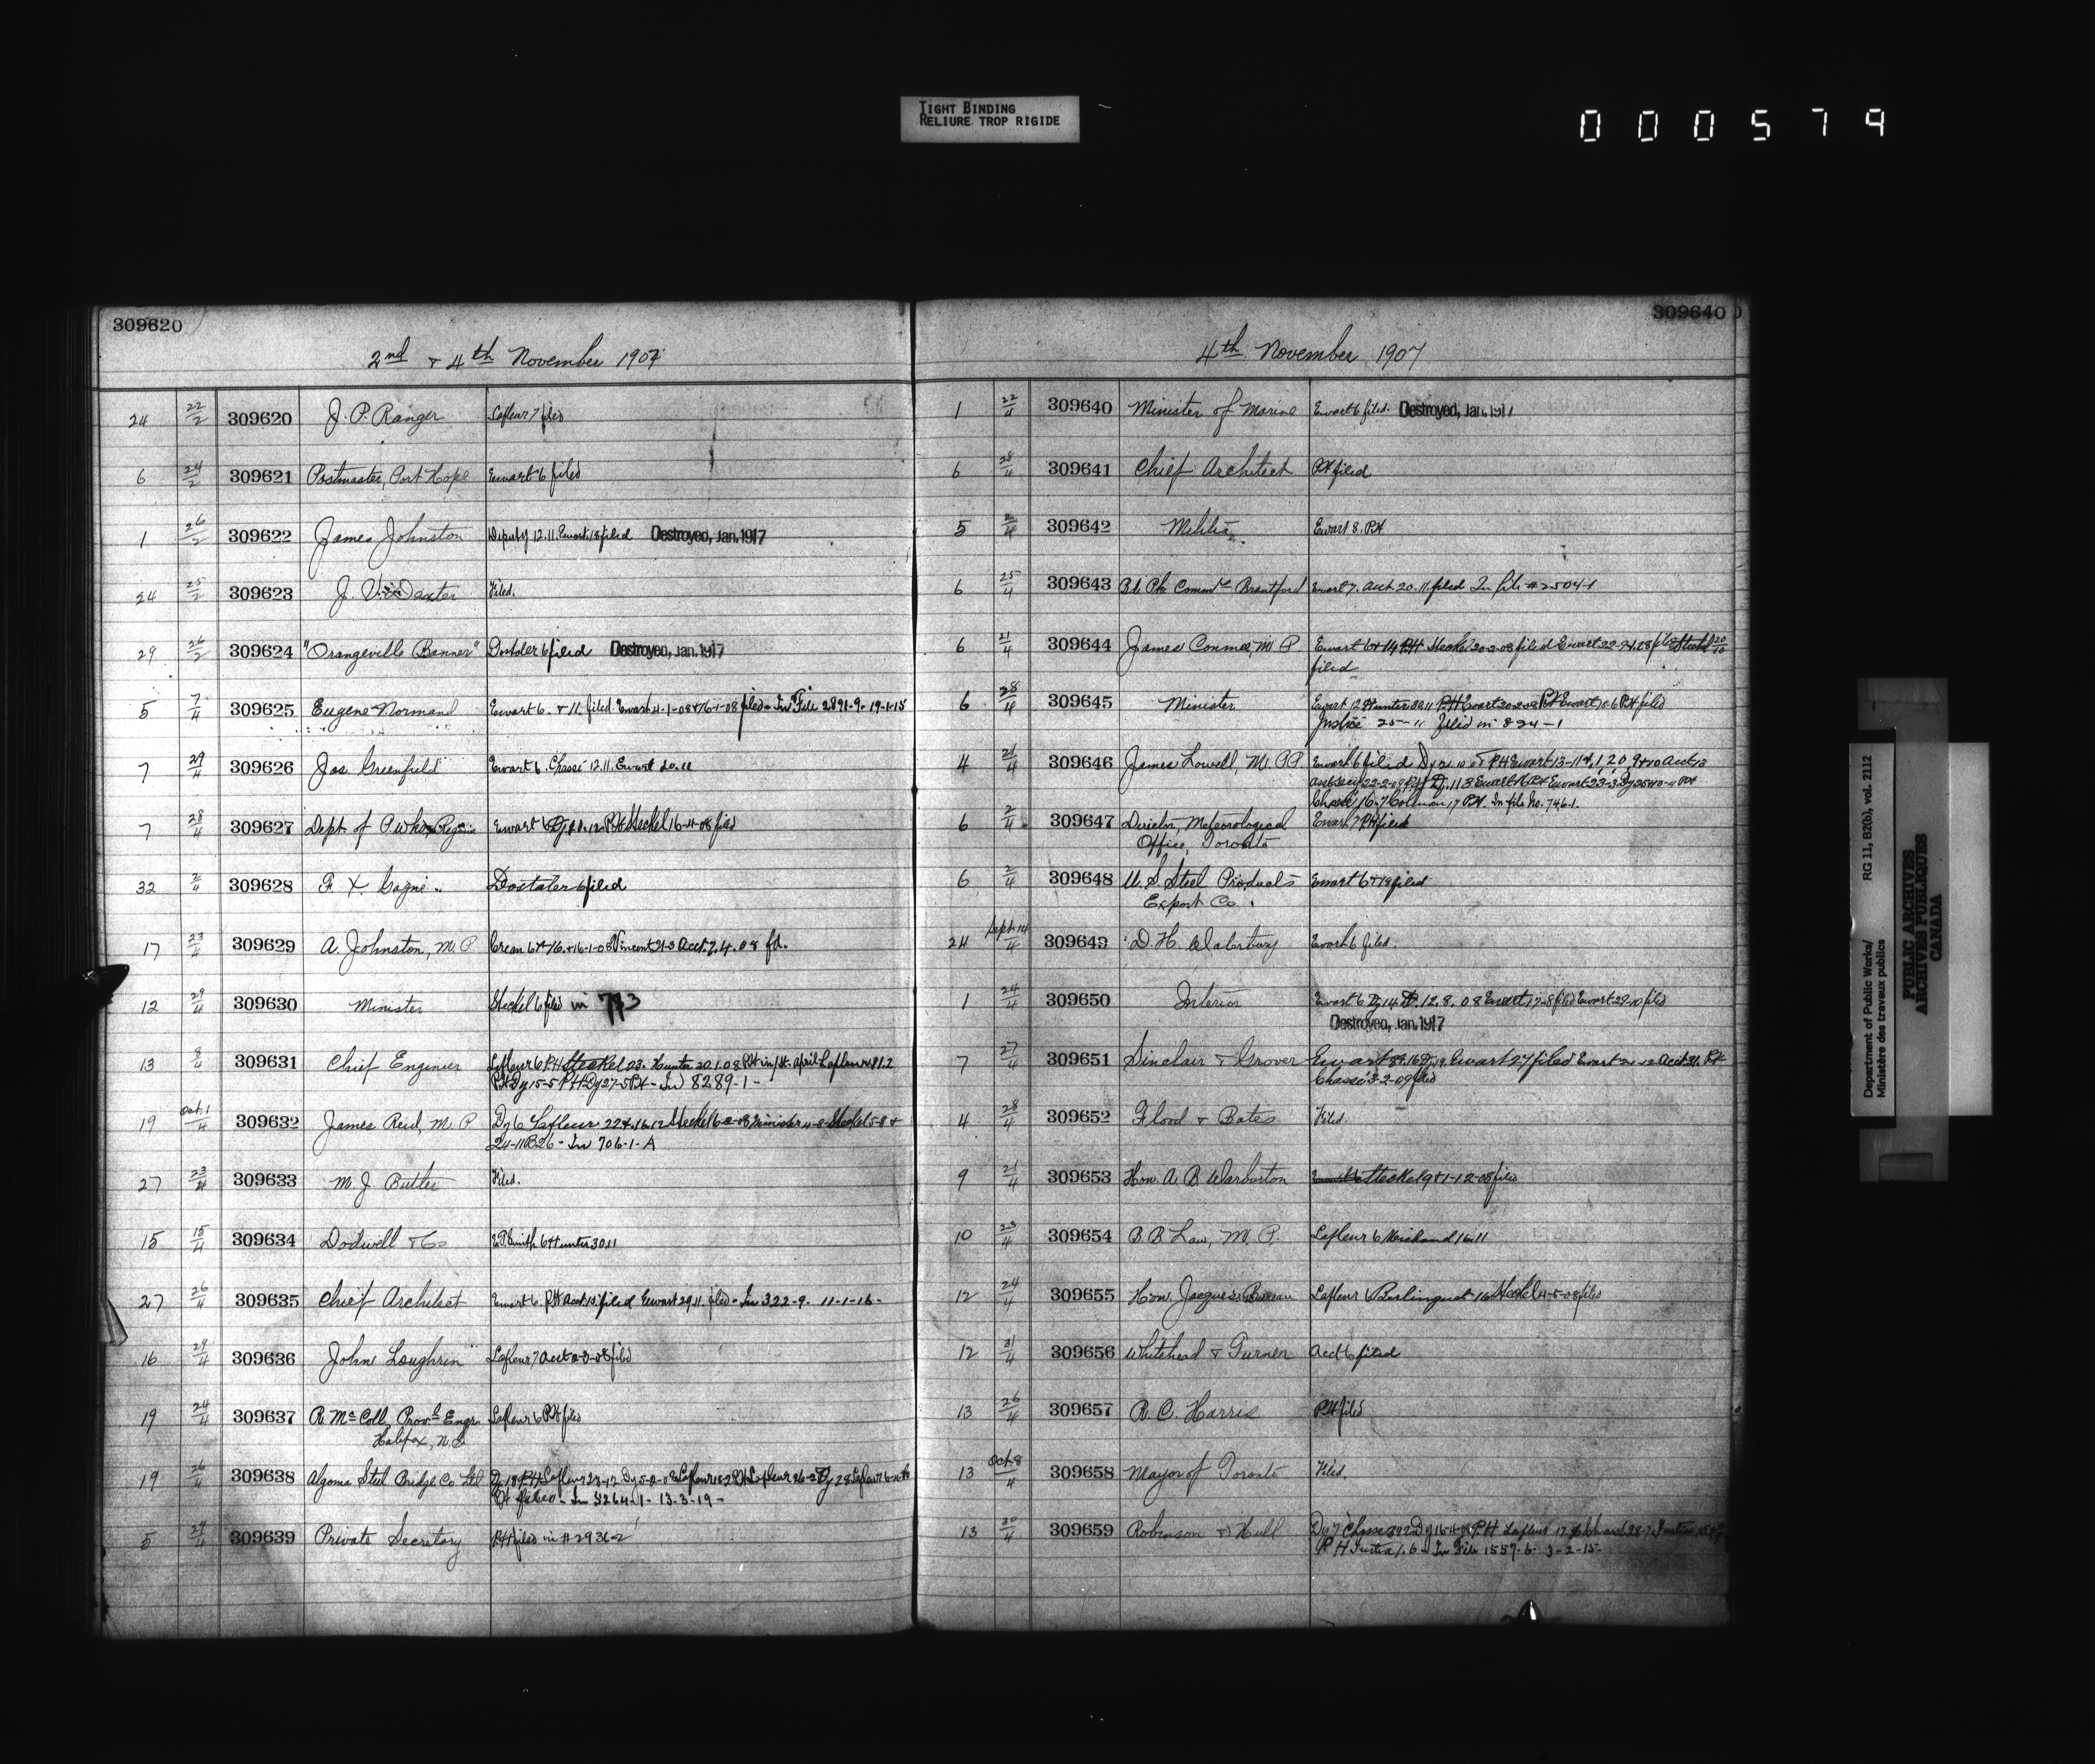 TIGHT BINDING
RELIURE TROP RIGIDE
000579
309620
2nd & 4th November 1907
24 22/2 309620 J. P. Ranger Lafleur 7 filed
6 24/2 309621 Postmaster, Port Hope Ewart 6 filed
1 26/2 309622 James Johnston Deputy 12.11. Ewart 18 filed Destroyed, Jan. 1917
24 25/2 309623 J. Dexter Filed.
29 26/2 309624 "Orangeville Banner" Dostaler 6 filed Destroyed, Jan. 1917
5 7/4 309625 Eugene Normand Ewart 6. & 11. filed. Ewart 4-1-08 & 16-1-08 filed - In File 2891-9- 19-1-15
7 29/4 309626 Jos. Greenfield Ewart 6. Chassé 12.11. Ewart 20.11
7 28/4 309627 Dept. of P. Wks, Regina Ewart 6 PH Steckel 16-4-08 filed
32 2/4 309628 F. X. Gagné Dostaler 6 filed
17 23/4 309629 A. Johnston, M.P. Crean 6 & 16-1-08 Vincent 21-3 Acct. 7.4.08 fd.
12 29/4 309630 Minister Steckel 6 filed in 793
13 8/4 309631 Chief Engineer Lafleur 6 PH Steckel 23. Hunter 20.1.08 PH in St. April Lafleur
PH Dy 15-5 PH Dy 27-5 PH - In 8289-1-
19 Oct. 1/4 309632 James Reid, M.P. Dy 6 Lafleur 22 & 16.12 Steckel 6-2-08 Minister Steckel 5-8 &
24-11 B26 - In 706-1-A
27 23/4 309633 M J Butler Filed.
15 15/4 309634 Dodwell & Co E.P. Smith 6 Hunter 30.11
27 26/4 309635 Chief Architect Ewart 6. PH Acct. 15 filed Ewart 29.11. filed - In 322-9. 11-1-16-
16 29/4 309636 John Loughrin Lafleur 7 Acct filed
19 24/4 309637 R. McColl, Provl Engr. Lafleur 6 PH filed
Halifax, N.S.
19 26/4 309638 Algoma Steel Bridge Co Ltd Dy 18 PH Lafleur 23-12 Lafleur 26-2 Dy 28 Lafleur
PH filed - In 3264-1- 13-3-19-
5 309639 Private Secretary PH filed in # 2936-2
309640
4th November 1907
1 22/4 309640 Minister of Marine Ewart 6 filed. Destroyed, Jan. 1917
6 28/4 309641 Chief Architect PH filed
5 2/4 309642 Militia Ewart 8. PH
6 25/4 309643 Bd. Pk. Commrs Brantford Ewart 7. Acct. 20.11. filed In file # 2504-1
6 21/4 309644 James Conmee, M.P. Ewart 6 & 14 PH Steckel 20-2-08 filed Ewart 22-
filed
6 28/4 309645 Minister Ewart 12 Hunter 30.11 PH Ewart 20-2-08 PH Ewart 10-6 PH filed
Justice 25-11 filed in 824-1
4 21/4 309646 James Lowell, M.P.P. Ewart 6 filed PH Ewart 13-11
Chassé 16-7 Colman 17 PH. In file No. 746-1.
6 2/4 309647 Director, Meteorological Ewart 7 PH filed
Office, Toronto
6 2/4 309648 U. S. Steel Products Ewart 6 & 19 filed
Export Co.
24 Sept. 14/4 309649 D. H. Waterbury Ewart 6 filed.
1 24/4 309650 Interior Ewart 6 Dy 14 12.8.08 Ewart 17-8 filed Ewart 29-10 filed
Destroyed, Jan. 1917
7 27/4 309651 Sinclair & Grover Ewart Ewart 27 filed Ewart Acct 31. PH
Chassé 3-2-09 filed
4 28/4 309652 Flood & Bates Filed.
9 21/4 309653 Hon. A B Warburton Steckel 9 & 1-12-08 filed
10 23/4 309654 B B Law, M.P. Lafleur 6 Michaud 16.11
12 24/4 309655 Hon. Jacques Bureau Lafleur 6 Berlinguet 16 Steckel 4-5-08 filed
12 31/4 309656 Whitehead & Turner Acct 6 filed
13 26/4 309657 R. C. Harris PH filed
13 Oct. 8/4 309658 Mayor of Toronto Filed.
13 30/4 309659 Robinson & Hull Dy 7 Chassé Dy 16-4-08 PH Lafleur 17
PH Justice 1.6 - In File 1557-6- 3-2-15-
Department of Public Works/ RG 11, B2(b), vol. 2112
Ministère des travaux publics
PUBLIC ARCHIVES
ARCHIVES PUBLIQUES
CANADA